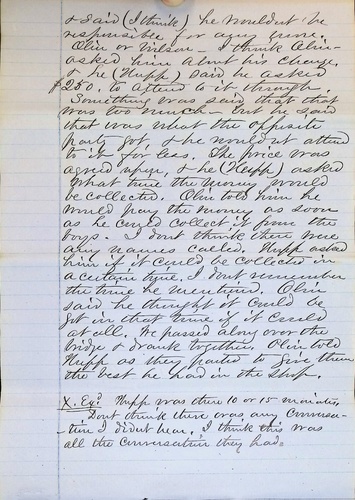 & said (I think) he wouldn't be
responsible for any more.
Olin or Wilson - I think Olin -
asked him about his charge,
& he (Hupp) said he asked
$250. to attend to it through.
Something was said that that
was too much - but he said
that was what the opposite
party got, & he would not attend
to it for less. The price was
agreed upon, & he (Hupp) asked
what time the money would
be collected. Olin told him he
would pay the money as soon
as he could collect it from the
boys. I don't think there were
any names called. Hupp asked
him if it could be collected in
a certain time. I don't remember
the time he mentioned. Olin
said he thought it could be
got in that time if it could
at all. We passed along over the
bridge & drank together. Olin told
Hupp as they parted to give them
the best he had in the shop.
X. Exd. Hupp was there 10 or 15 minutes,
Don't think there was any conversa-
tion I didn't hear. I think this was
all the conversation they had.